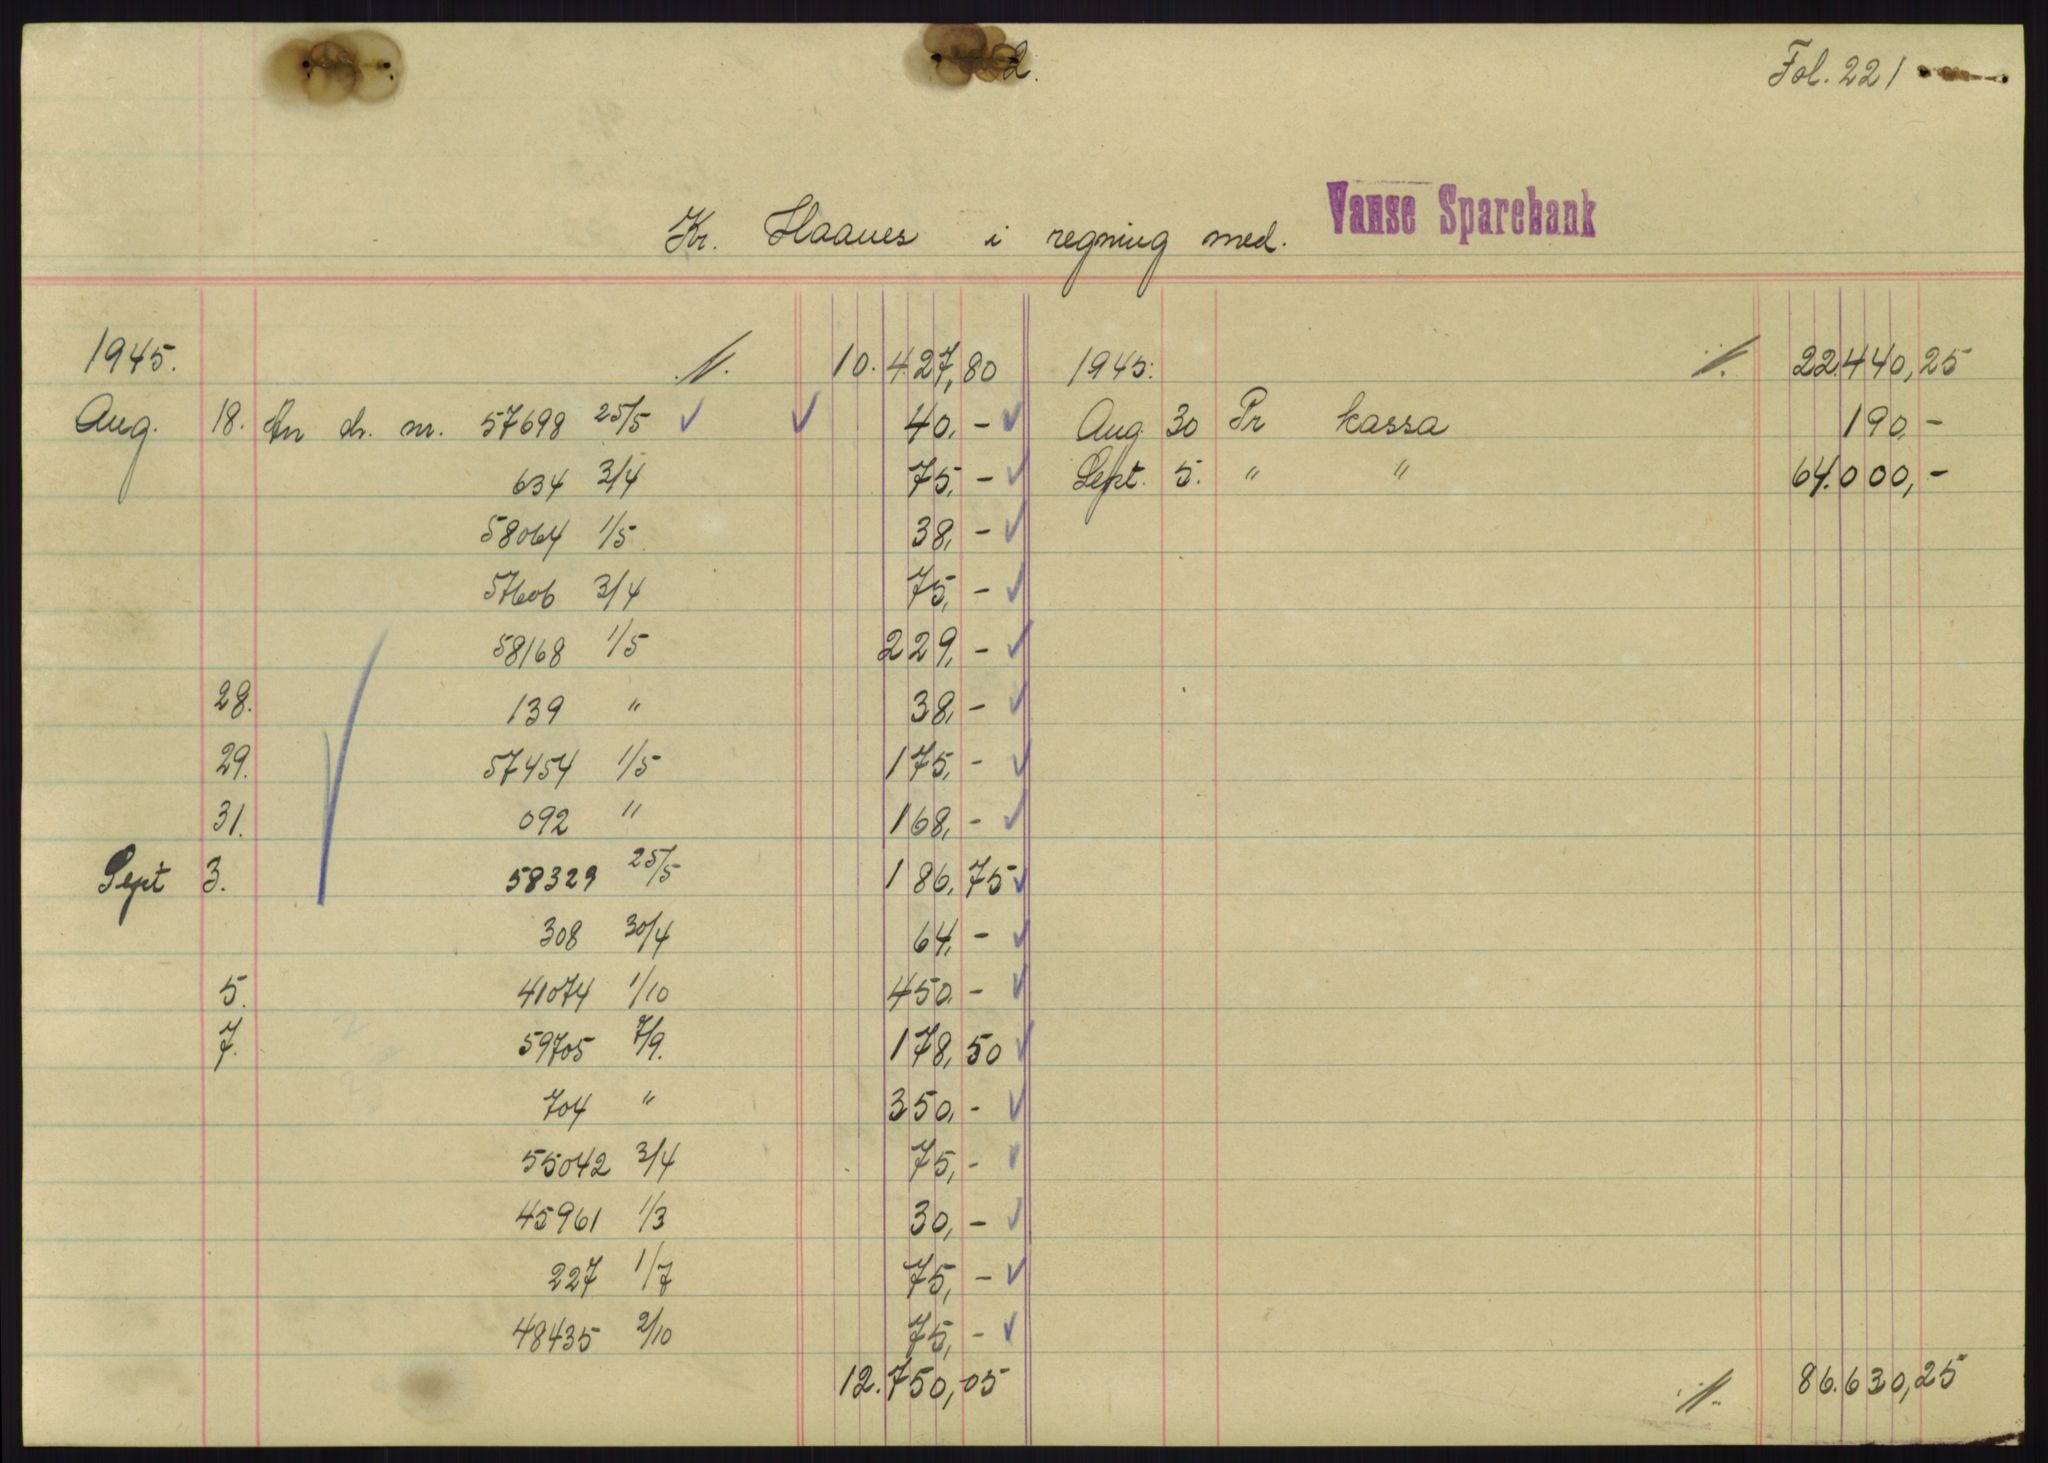 2. Fol. 221
Kr. Haanes i regning med. Vanse Sparebank
1945. ./. 10.427,80 1945. ./. 22.440,25
Aug. 18. An ch. nr. 57698 25/5 40,- Aug 30 Pr kassa 190,-
634 3/4 75,- Sept. 5. " " 64.000,-
58064 1/5 38,-
57606 3/4 75,-
58168 1/5 229,-
28. 139 " 38,-
29. 57454 1/5 175,-
31. 092 " 168,-
Sept 3. 58329 25/5 186,75
308 30/4 64,-
5. 41074 1/10 450,-
7. 59705 7/9. 178,50
704 " 350,-
55042 3/4 75,-
45961 1/3 30,-
227 1/7 75,-
48435 2/10 75,-
12.750,05 ./. 86.630,25